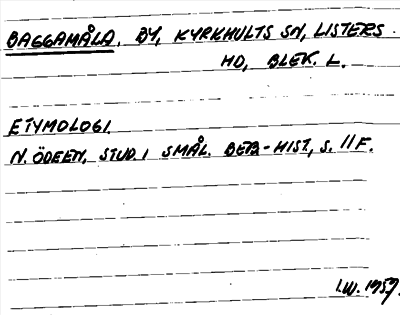 BAGGAMÅLA, BY, KYRKHULTS SN, LISTERS
HD, BLEK. L.
ETYMOLOGI
N. ÖDEEN, STUD. I SMÅL. BEB-HIST, S. 11 F.
I.W. 1959.